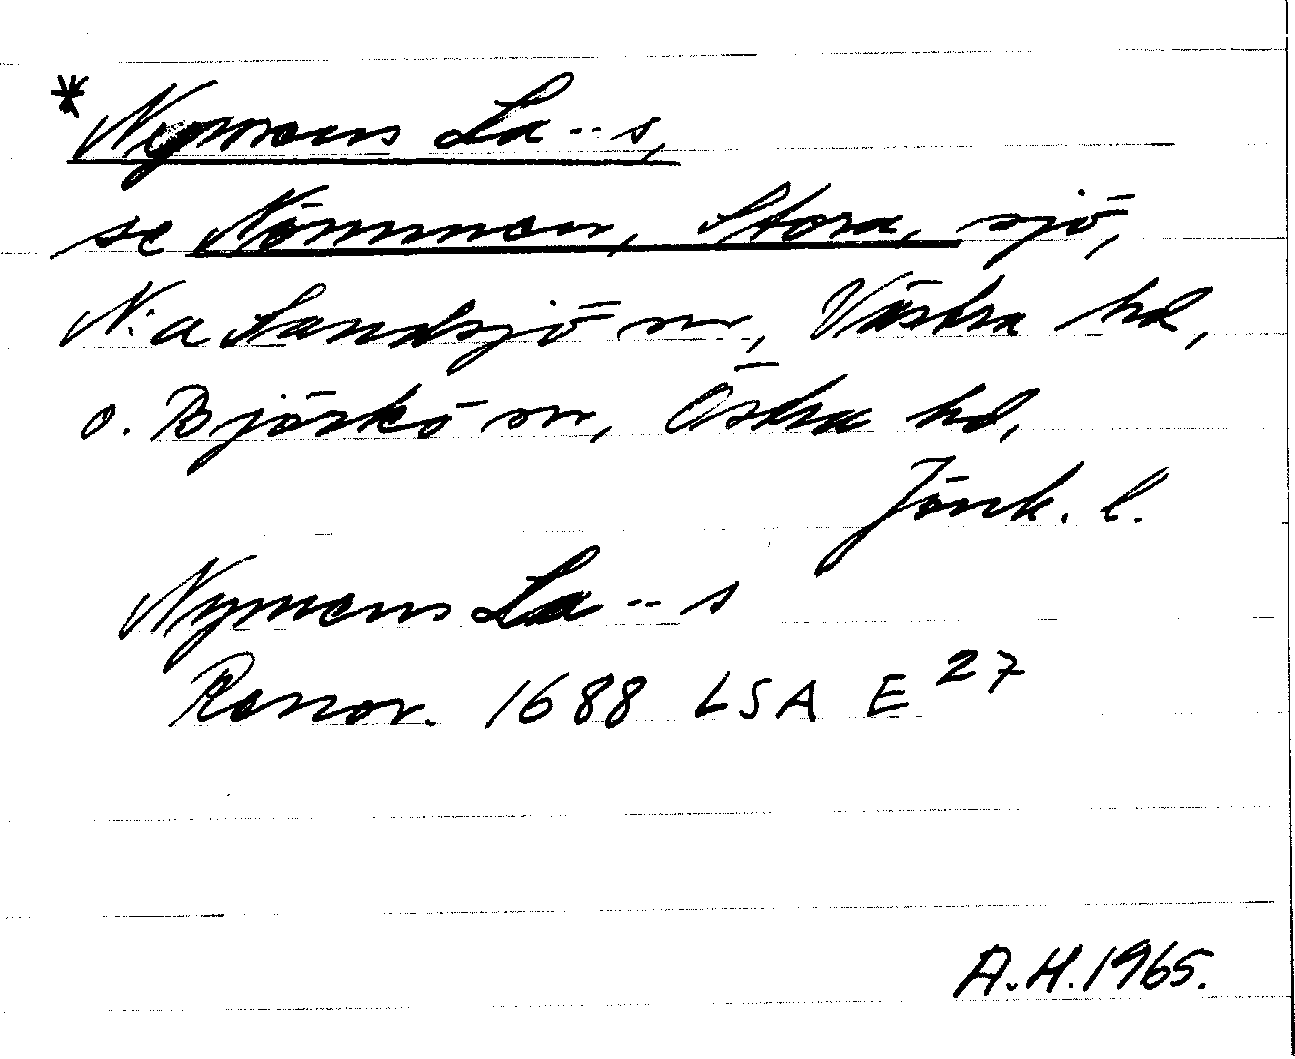 *Nymens La--s,
se Nömmen, Stora, sjö,
N:a Sandsjö sn, Västra hd,
o. Björkö sn, Östra hd,
Jönk. l.
Nymens La--s
Rannor. 1688 LSA E 27
A.H.1965.